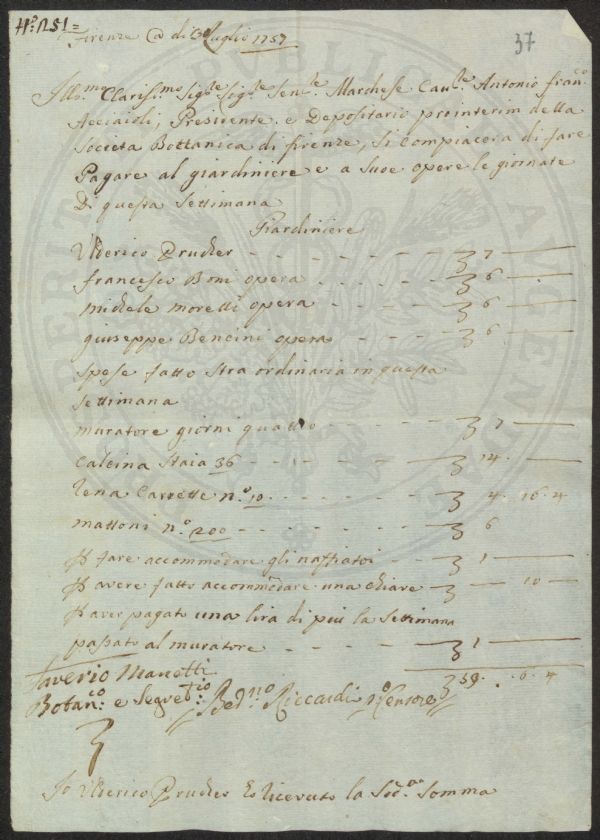 N.º 1251=
37
Firenze @ di Luglio 1757
Ill:mo Claris:mo Sig:re Sig:re Sen:re Marchese Cau:re Antonio fran:co
Acciaioli Presidente e Depositario prointerim della
Società Bottanica di firenze, si Compiacerà di fare
Pagare al giardiniere e a sue opere le giornate
Di questa Settimana
Giardiniere
Ulderico Prucker - - - - - - 7 —
francesco Boni opera - - - - - 6 —
Michele moretti opera - - - - - 6 —
giuseppe Bencini opera - - - - - 6 —
Spese fatto Stra ordinaria in questa
Settimana
muratore giorni quattro - - - - 7 —
Calcina Staia 36 - - - - - - 14 —
rena Carrette n.º 10 - - - - - 4. 16. 4
mattoni n.º 200 - - - - - - 6
fare accommodare gli naffiatoi - - 1 —
avere fatto accommodare una chiave - — 10 —
aver pagato una lira di più la Settimana
passato al muratore - - - - - 1 —
59. 6. 4
Saverio Manetti
Botan:co e Segret:rio Bed:no Riccardi Censore
Io Ulderico Prucker ho ricevuto la Sod:a Somma